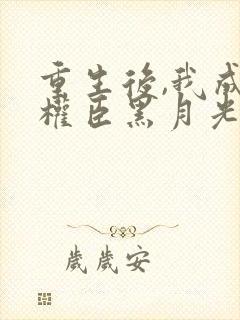 重生後,我成
權臣黑月光
歲歲安